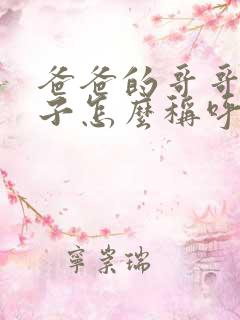 爸爸的哥哥
子怎麼稱呼
寧崇瑞